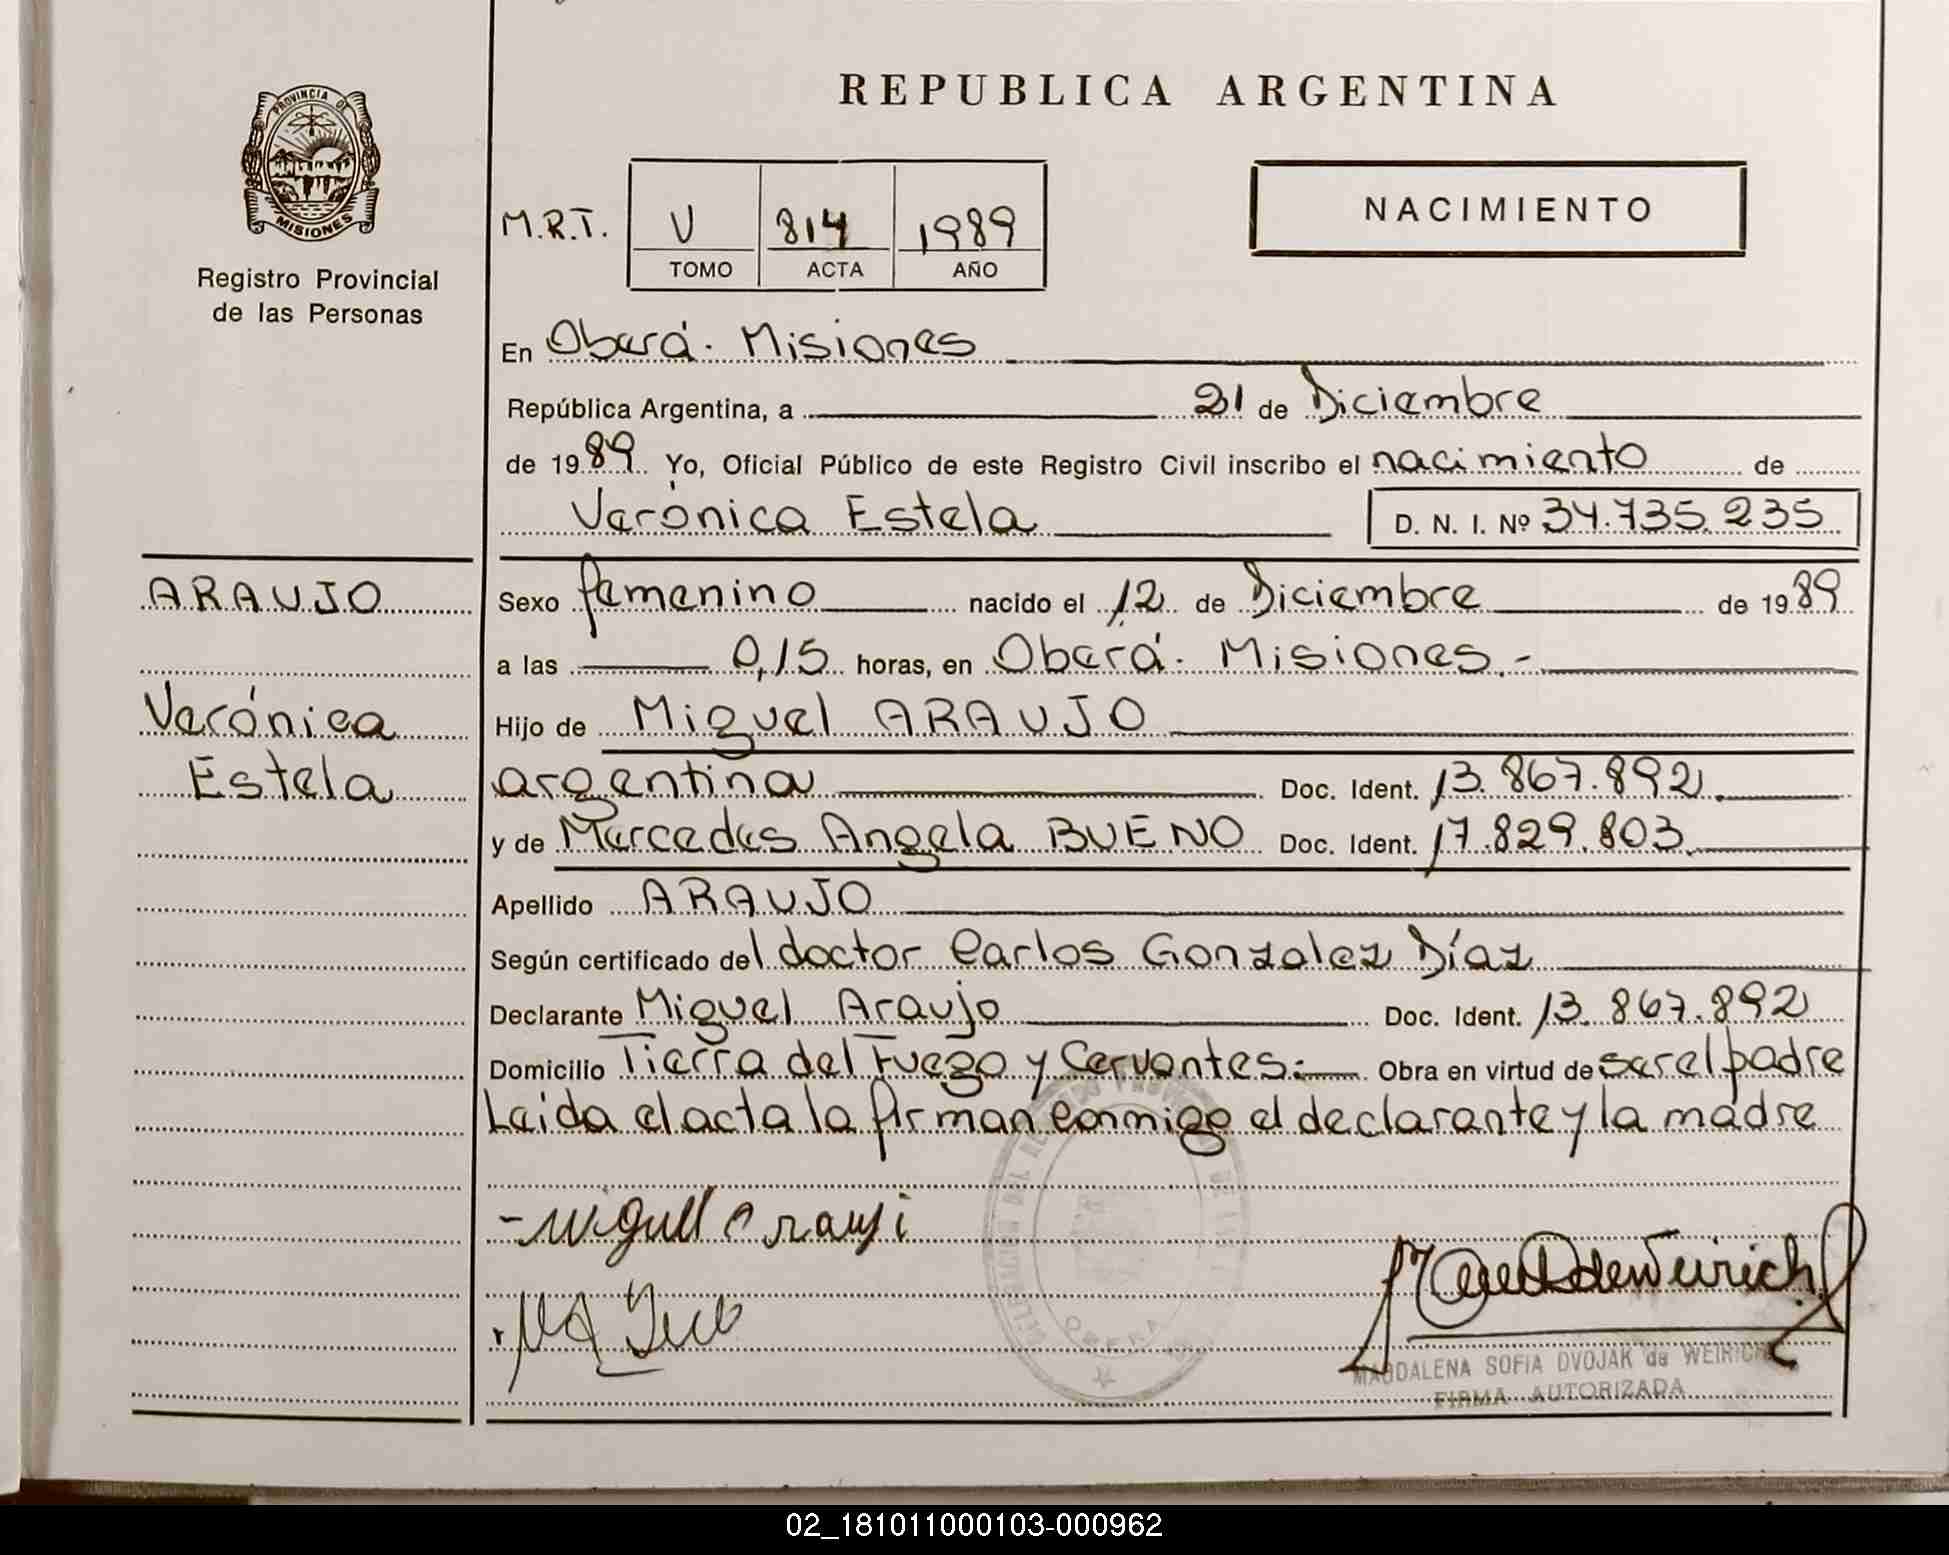 REPUBLICA ARGENTINA
PROVINCIA DE
MISIONES
Registro Provincial
de las Personas
M.R.T.
V 814 1989
TOMO ACTA AÑO
NACIMIENTO
En Oberá. Misiones
República Argentina, a 21 de Diciembre
de 1989 Yo, Oficial Público de este Registro Civil inscribo el nacimiento de
Verónica Estela D. N. I. Nº 34.735.235
ARAUJO
Verónica
Estela
Sexo femenino nacido el 12 de Diciembre de 1989
a las 0,15 horas, en Oberá. Misiones.-
Hijo de Miguel ARAUJO
argentina Doc. Ident. 13.867.892.
y de Mercedes Angela BUENO Doc. Ident. 17.829.803.
Apellido ARAUJO
Según certificado del doctor Carlos Gonzalez Díaz
Declarante Miguel Araujo Doc. Ident. 13.867.892
Domicilio Tierra del Fuego y Cervantes.- Obra en virtud de ser el padre
Leida el acta la firman conmigo el declarante y la madre
MAGDALENA SOFIA DVOJAK de WEIRICH
FIRMA AUTORIZADA
OBERA
02_181011000103-000962